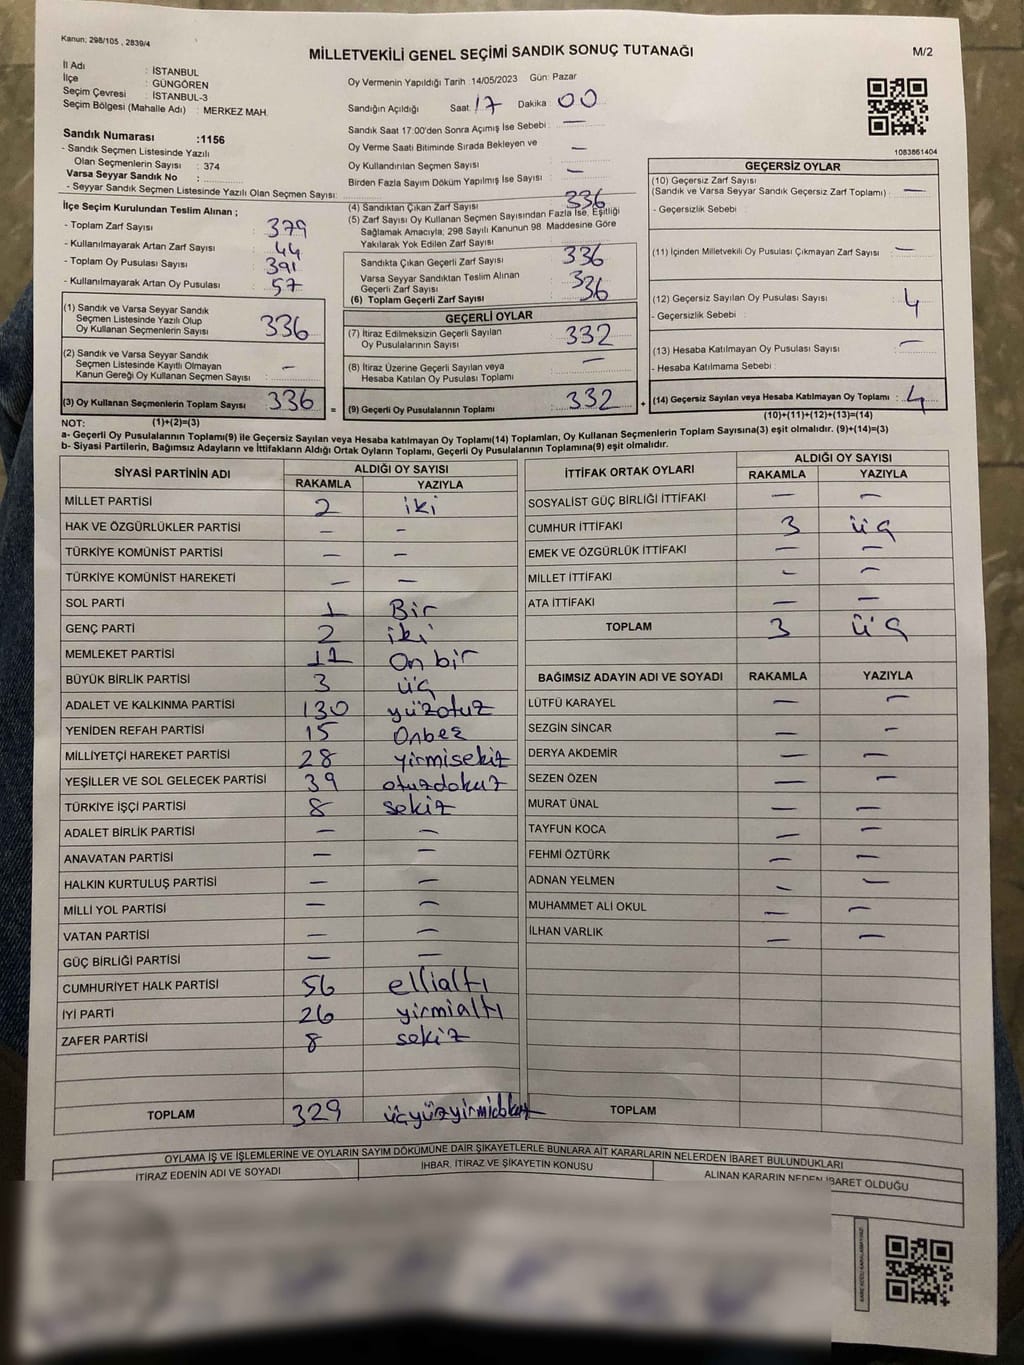 Kanun; 298/105 , 2839/4
MİLLETVEKİLİ GENEL SEÇİMİ SANDIK SONUÇ TUTANAĞI
M/2
İl Adı : İSTANBUL
İlçe : GÜNGÖREN
Seçim Çevresi : İSTANBUL-3
Seçim Bölgesi (Mahalle Adı) : MERKEZ MAH.
Sandık Numarası :1156
- Sandık Seçmen Listesinde Yazılı
Olan Seçmenlerin Sayısı : 374
Varsa Seyyar Sandık No :
- Seyyar Sandık Seçmen Listesinde Yazılı Olan Seçmen Sayısı:
İlçe Seçim Kurulundan Teslim Alınan ;
- Toplam Zarf Sayısı : 379
- Kullanılmayarak Artan Zarf Sayısı : 44
- Toplam Oy Pusulası Sayısı : 391
- Kullanılmayarak Artan Oy Pusulası : 57
(1) Sandık ve Varsa Seyyar Sandık
Seçmen Listesinde Yazılı Olup
Oy Kullanan Seçmenlerin Sayısı : 336
(2) Sandık ve Varsa Seyyar Sandık
Seçmen Listesinde Kayıtlı Olmayan
Kanun Gereği Oy Kullanan Seçmen Sayısı : –
(3) Oy Kullanan Seçmenlerin Toplam Sayısı : 336
(1)+(2)=(3)
Oy Vermenin Yapıldığı Tarih :14/05/2023 Gün: Pazar
Sandığın Açıldığı Saat: 17 Dakika 00
Sandık Saat 17:00'den Sonra Açımış İse Sebebi : –
Oy Verme Saati Bitiminde Sırada Bekleyen ve
Oy Kullandırılan Seçmen Sayısı : –
Birden Fazla Sayım Döküm Yapılmış İse Sayısı : –
(4) Sandıktan Çıkan Zarf Sayısı : 336
(5) Zarf Sayısı Oy Kullanan Seçmen Sayısından Fazla İse, Eşitliği
Sağlamak Amacıyla; 298 Sayılı Kanunun 98. Maddesine Göre
Yakılarak Yok Edilen Zarf Sayısı :
Sandıkta Çıkan Geçerli Zarf Sayısı : 336
Varsa Seyyar Sandıktan Teslim Alınan
Geçerli Zarf Sayısı :
(6) Toplam Geçerli Zarf Sayısı : 336
GEÇERLİ OYLAR
(7) İtiraz Edilmeksizin Geçerli Sayılan
Oy Pusulalarının Sayısı : 332
(8) İtiraz Üzerine Geçerli Sayılan veya
Hesaba Katılan Oy Pusulası Toplamı : –
= (9) Geçerli Oy Pusulalarının Toplamı : 332
1083861404
GEÇERSİZ OYLAR
(10) Geçersiz Zarf Sayısı
(Sandık ve Varsa Seyyar Sandık Geçersiz Zarf Toplamı) : –
- Geçersizlik Sebebi :
(11) İçinden Milletvekili Oy Pusulası Çıkmayan Zarf Sayısı : –
(12) Geçersiz Sayılan Oy Pusulası Sayısı : 4
- Geçersizlik Sebebi :
(13) Hesaba Katılmayan Oy Pusulası Sayısı : –
- Hesaba Katılmama Sebebi :
+ (14) Geçersiz Sayılan veya Hesaba Katılmayan Oy Toplamı : 4
(10)+(11)+(12)+(13)=(14)
NOT:
a- Geçerli Oy Pusulalarının Toplamı(9) ile Geçersiz Sayılan veya Hesaba katılmayan Oy Toplamı(14) Toplamları, Oy Kullanan Seçmenlerin Toplam Sayısına(3) eşit olmalıdır. (9)+(14)=(3)
b- Siyasi Partilerin, Bağımsız Adayların ve İttifakların Aldığı Ortak Oyların Toplamı, Geçerli Oy Pusulalarının Toplamına(9) eşit olmalıdır.
SİYASİ PARTİNİN ADI ALDIĞI OY SAYISI
RAKAMLA YAZIYLA
MİLLET PARTİSİ 2 iki
HAK VE ÖZGÜRLÜKLER PARTİSİ – –
TÜRKİYE KOMÜNİST PARTİSİ – –
TÜRKİYE KOMÜNİST HAREKETİ – –
SOL PARTİ 1 Bir
GENÇ PARTİ 2 iki
MEMLEKET PARTİSİ 11 On bir
BÜYÜK BİRLİK PARTİSİ 3 üç
ADALET VE KALKINMA PARTİSİ 130 yüzotuz
YENİDEN REFAH PARTİSİ 15 Onbeş
MİLLİYETÇİ HAREKET PARTİSİ 28 yirmisekiz
YEŞİLLER VE SOL GELECEK PARTİSİ 39 otuzdokuz
TÜRKİYE İŞÇİ PARTİSİ 8 sekiz
ADALET BİRLİK PARTİSİ – –
ANAVATAN PARTİSİ – –
HALKIN KURTULUŞ PARTİSİ – –
MİLLİ YOL PARTİSİ – –
VATAN PARTİSİ – –
GÜÇ BİRLİĞİ PARTİSİ – –
CUMHURİYET HALK PARTİSİ 56 ellialtı
İYİ PARTİ 26 yirmialtı
ZAFER PARTİSİ 8 sekiz
TOPLAM 329 üçyüzyirmidokuz
İTTİFAK ORTAK OYLARI ALDIĞI OY SAYISI
RAKAMLA YAZIYLA
SOSYALİST GÜÇ BİRLİĞİ İTTİFAKI – –
CUMHUR İTTİFAKI 3 üç
EMEK VE ÖZGÜRLÜK İTTİFAKI – –
MİLLET İTTİFAKI – –
ATA İTTİFAKI – –
TOPLAM 3 üç
BAĞIMSIZ ADAYIN ADI VE SOYADI RAKAMLA YAZIYLA
LÜTFÜ KARAYEL – –
SEZGİN SİNCAR – –
DERYA AKDEMİR – –
SEZEN ÖZEN – –
MURAT ÜNAL – –
TAYFUN KOCA – –
FEHMİ ÖZTÜRK – –
ADNAN YELMEN – –
MUHAMMET ALİ OKUL – –
İLHAN VARLIK – –
TOPLAM
OYLAMA İŞ VE İŞLEMLERİNE VE OYLARIN SAYIM DÖKÜMÜNE DAİR ŞİKAYETLERLE BUNLARA AİT KARARLARIN NELERDEN İBARET BULUNDUKLARI
İTİRAZ EDENİN ADI VE SOYADI İHBAR, İTİRAZ VE ŞİKAYETİN KONUSU ALINAN KARARIN NEDEN İBARET OLDUĞU